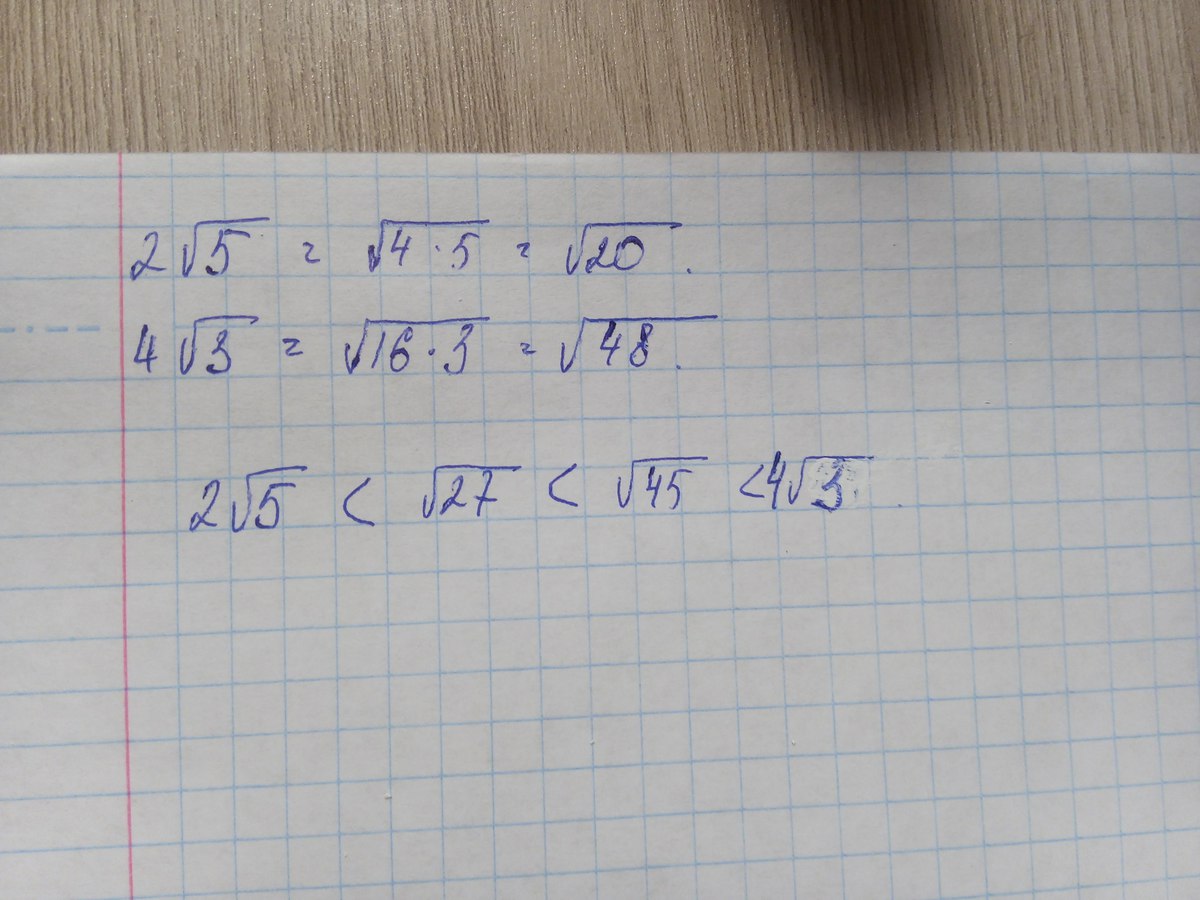 2√5 = √4·5 = √20.
4√3 = √16·3 = √48.
2√5 < √27 < √45 < 4√3.